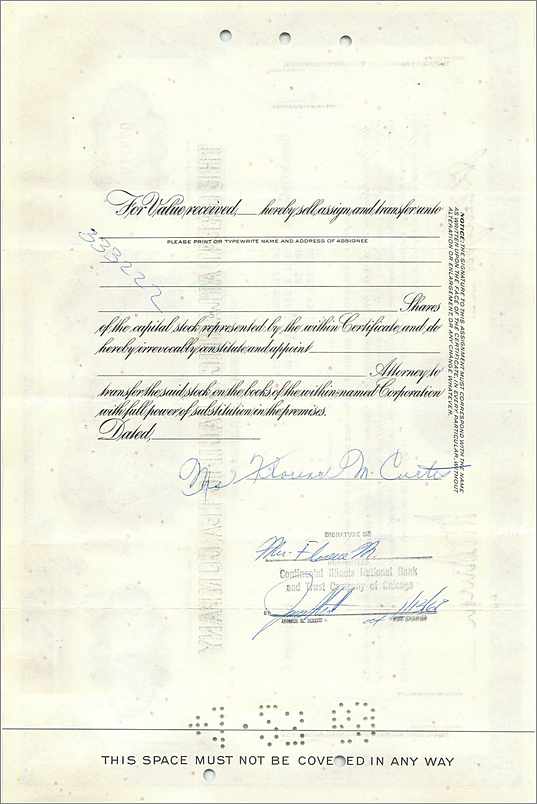 For Value received, ___ hereby sell, assign, and transfer unto
PLEASE PRINT OR TYPEWRITE NAME AND ADDRESS OF ASSIGNEE
333222
Shares
of the capital stock represented by the within Certificate, and do
hereby irrevocably constitute and appoint
Attorney to
transfer the said stock on the books of the within-named Corporation
with full power of substitution in the premises.
Dated,
NOTICE: THE SIGNATURE TO THIS ASSIGNMENT MUST CORRESPOND WITH THE NAME
AS WRITTEN UPON THE FACE OF THE CERTIFICATE, IN EVERY PARTICULAR, WITHOUT
ALTERATION OR ENLARGEMENT OR ANY CHANGE WHATEVER.
Mrs M.
SIGNATURE OF
Mrs. M.
Continental Illinois National Bank
and Trust Company of Chicago
THIS SPACE MUST NOT BE COVERED IN ANY WAY